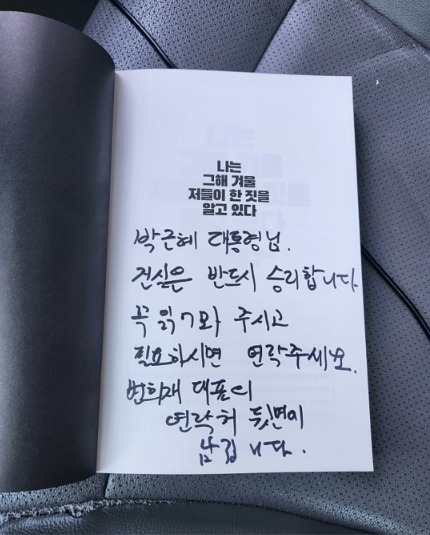 나는
그해 겨울
저들이 한 짓을
알고 있다
박근혜 대통령님.
진실은 반드시 승리합니다
꼭 읽어봐 주시고
필요하시면 연락주세요.
변희재 대표의
연락처 뒷면에
남깁니다.